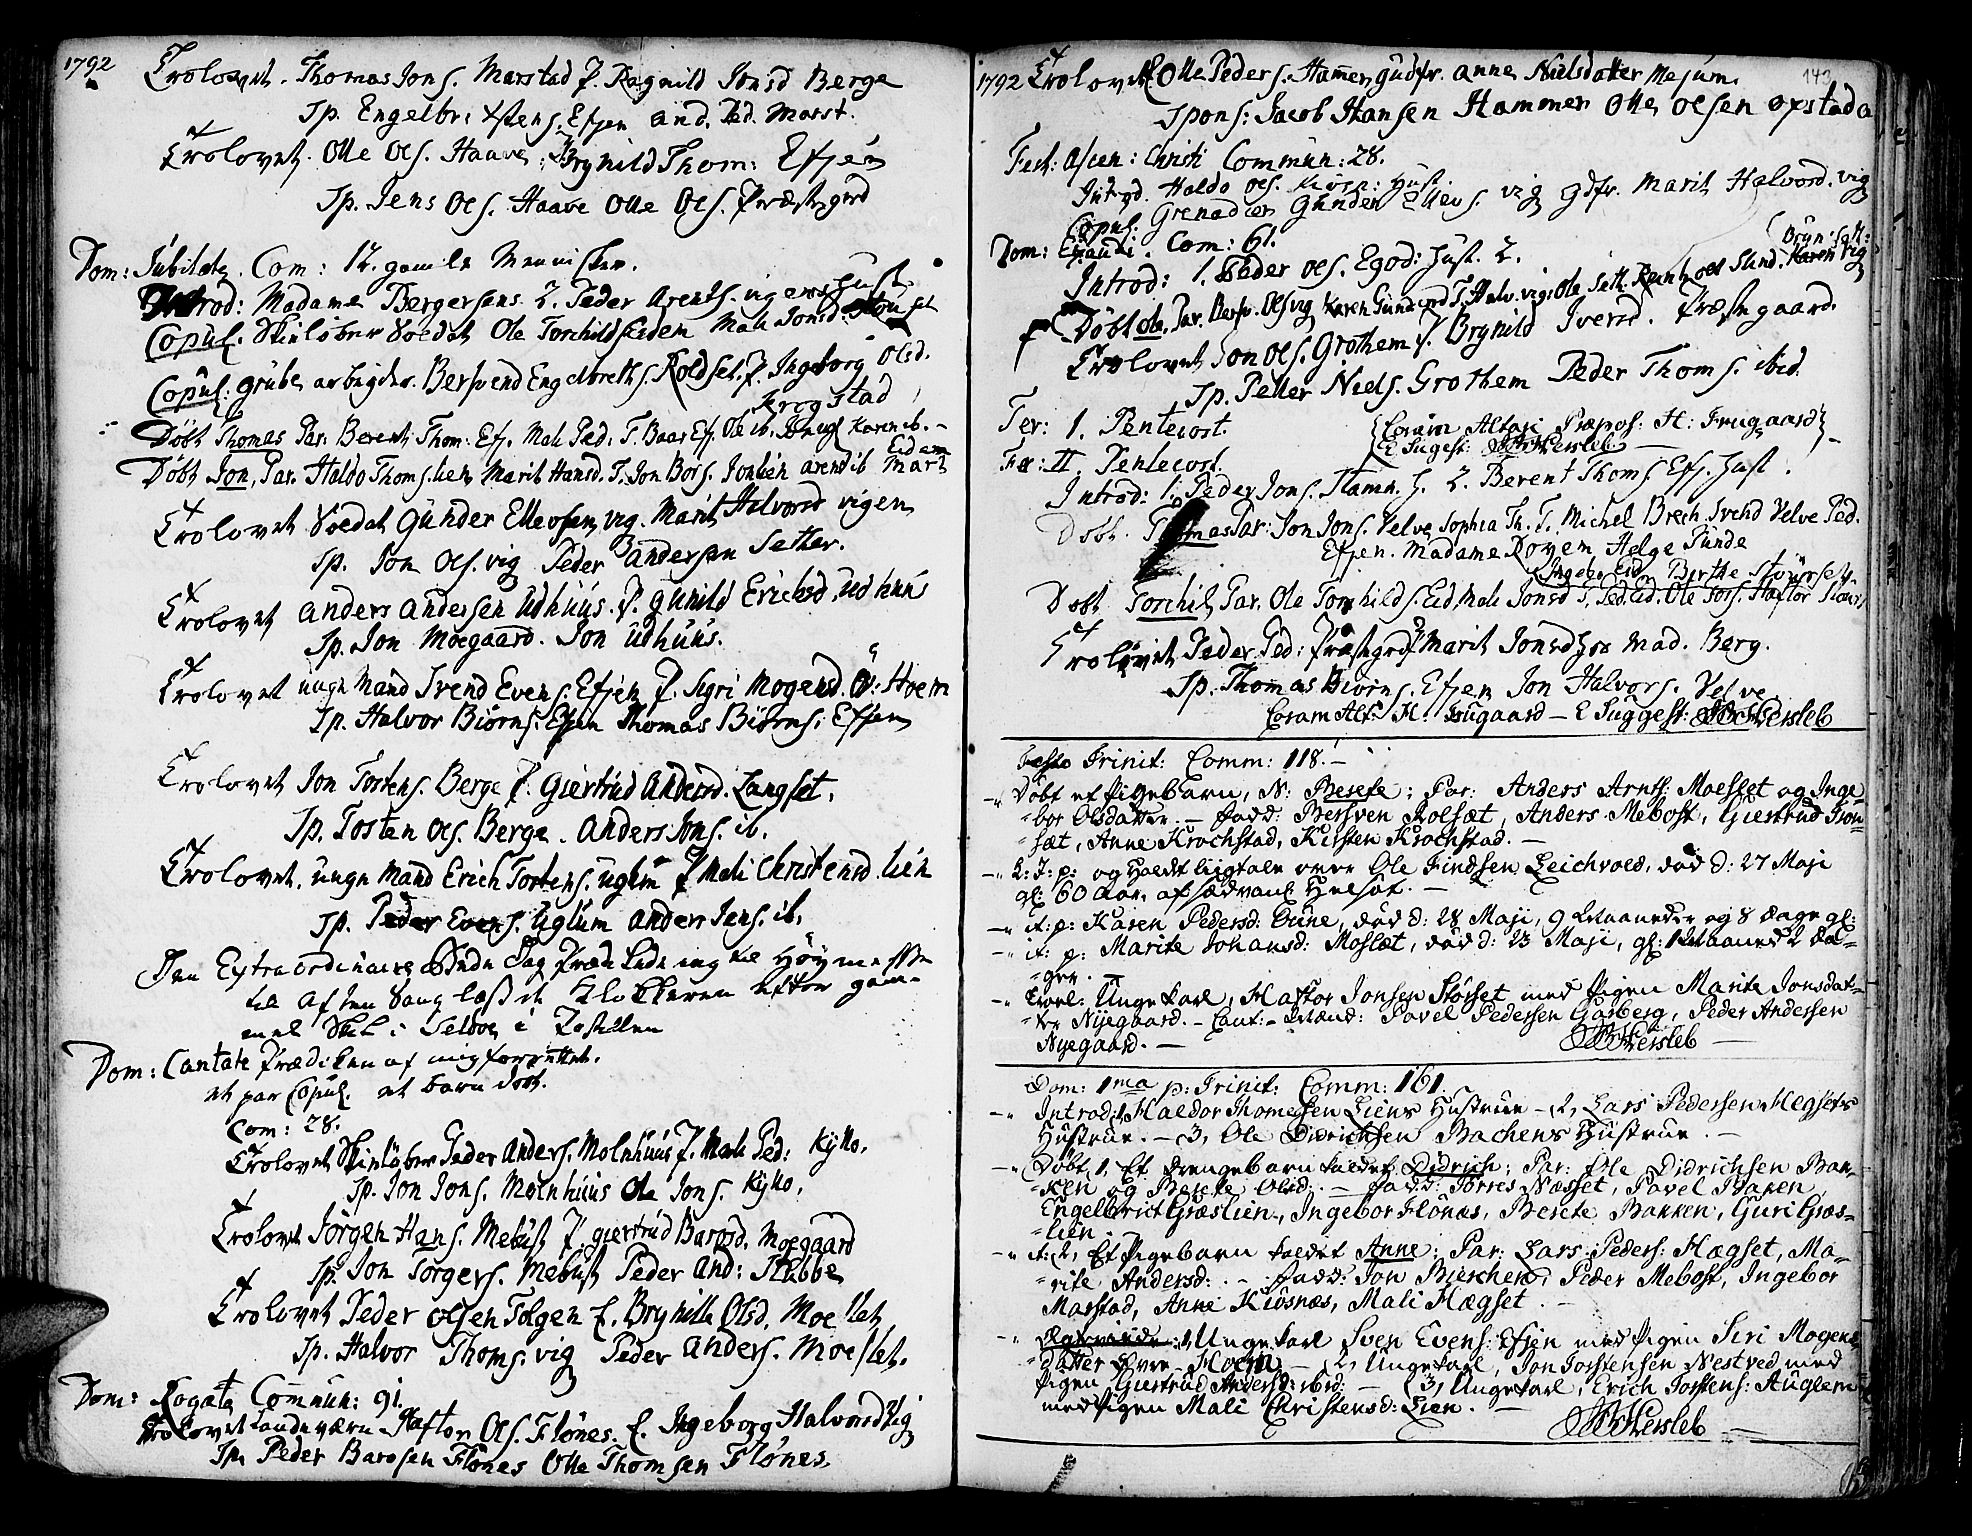 1792
Trolovet. Thomas Jons. Marstad P. Ragnild Jonsd Berge
Sp. Engelbr: Estens. Efjen and. Ped. Marst.
Trolovet. Olle Ols. Haave. P. Brynild Thom: Efjen
Sp. Jens Ols. Haave Olle Ols. Præstegrd
Dom: Jubilate. Com: 12. gamle Mennisker.
Introd: Madame Bergersens 2. Peder Arents. vigens Hust.
Copul. Skiløber Soldat Ole Torchilds Eidem Mali Jonsd.
Copul: grube arbeyder. Bersvend Engelbreths. Roldset. P. Ingeborg Olsd.
Krogstad
Døbt Thomas Par: Berent Thom: Efj. Mali Ped. T. Baar Efj. Ole ib. Karen ib.
Døbt Jon, Par. Haldo Thoms. lien Marit Hansd. T. Jon Bors. Jon lien arend ib Marit
Eidem
Trolovet Soldat Gunder Ellevsen vig. Marit Halvorsd vigen
Sp. Jon Ols. vig Peder andersen Setter.
Trolovet anders andersen Udhuus. P. gunild Erichsd. udhuus
Sp. Jon Moegaard. Jon udhuus.
Trolovet unge Mand Svend Evens. Efjen P. Sigri Mogensd. Ö: Hoem
Sp. Halvor Biörns. Efjen Thomas Biörns: Efjen
Trolovet Jon Tostens. Berge P. Giertrud Andersd. Langset.
Sp. Tosten Ols. Berge. Anders Jons. ib.
Trolovet. unge Mand Erich Tostens. uglem P Mali Christensd. lien
Sp. Peder Evens. Uglum anders Jens. ib.
Den Extraordinaire Bede Dag Præd
til Aften Sang lest Klockeren efter gam-
mel Skik i Selboe
Dom: Cantate Prædiken af mig forrettet.
et par Copul. et barn døbt.
Com: 28.
Trolovet Skiløber Peder Anders. Molnhuus P. Mali Ped: Kyko.
Sp. Jon Jons. Molnhuus Ole Jons. Kyko.
Trolovet Jörgen Hans. Mebust P. giertrud Barosd. Moegaard
Sp. Jon Torgers. Mebust Peder And: Stubbe
Trolovet Peder Olsen Folgen P. Brynille Olsd. Moeslet
Sp. Halvor Thoms. vig Peder Anders. Moeslet.
Dom: Rogate Commun: 91.
Trolovet Landeværn Haftor Ols. Flönes. P. Ingeborg Halvorsd Vig
Sp. Peder Barosen Flönes Olle Thomsen Flönes
1792 Trolovet. Olle Peders. Hammer gudfr. anne Nielsdatter Mejum. 143
Spons: Jacob Hansen Hammer Olle Olsen Opstad
Fest: Ascen: Christi Commun: 28.
Introd. Haldo Ols. Kiösn: Hust.
Copul: Grenadier Gunder Ellevs. vig gdfr. Marit Halvord. vig
Dom: Exaudi. Com: 61.
Introd: 1. Peder Ols. Egod: Hust. 2.
Døbt Ole, Par. Bersv. Ols vig Karen Gundersd T. Halv. vig: Ole Sett. Sund. Karen vig
Trolovet Jon Ols. Grothem P. Brynild Iversd. Præstegaard.
Sp. Peller Niels. Grothem Peder Thoms. ibid.
Fer: 1. Pentecost. Coram Altari Præpos: H: Irugaard
E Sugest: Hersleb
Fer: II. Pentecost.
Introd: 1. Peder Jons. Hamn. H. 2. Berent Thoms. Efj. Hust.
Døbt. Thomas Par: Jon Jons. Velve, Sophia Th. T. Michel Brech. Svend Velve Ped.
Efjen. Madame Helge Sunde
Ingebor Eid. Berthe Stöursey.
Døbt Torchil, Par. Ole Torchilds. Eid, Mali Jonsd T. Ped. Eid. Ole Tors. Haftor
Trolovet Peder Ped: Præstegrd P Marit Jonsd hos Mad. Berg.
Sp. Thomas Biörns. Efjen Jon Halvors. Velve
Coram Alt: H. Irugaard — E Suggest: Hersleb
Festo Trinit: Comm: 118.
Døbt et Pigebarn, N: Berete; Par: Anders Arnts: Moeslet og Inge-
bor Olsdatter. — Fadd: Bersven Rolsæt, Anders Mebost, Giertrud Ron-
sæt, Anne Krochstad, Kirsten Krochstad. —
L: J: p: og Holdt liigtale over Ole Findsen Leichvold, død d: 27 Maji
gl: 60 Aar, af sædvanl: Helsot. —
it: p: Karen Pedersd: Eune, død d: 28 Maji, 9 Maaneder og 8 Dage gl:
it: p: Marite Johansd: Moslet, død d: 23 Maji, gl: 1 Maaned 2 Da-
ger. —
Trol: Ungekarl, Haftor Jonsen Störset med Pigen Marite Jonsdat-
ter Nyegaard. — Caut:- Mænd: Pavel Pedersen Garberg, Peder Andersen
Nyegaard. — Hersleb —
Dom: 1ma p: Trinit: Comm: 161.
Introd: 1, Haldor Thomesen Liens Hustrue — 2, Lars Pedersen Hegsets
Hustrue. — 3, Ole Didrichsen Bachens Hustrue. —
Døbt 1, Et Drengebarn kaldet Didrich; Par: Ole Didrichsen Bak-
ken og Berete Olsd: — Fadd: Torres Næsset, Pavel Baken,
Engelbrict Græslien, Ingebor Flönæs, Berete Bakken, Guri Græs-
lien. —
it: 2, Et Pigebarn kaldet Anne; Par: Lars Peders: Hægset, Ma-
rite Andersd: — Fadd: Jon Bierchen, Peder Mebost, Ingebor
Marstad, Anne Kiösnæs, Mali Hægset. —
1, Ungekarl Sven Evens: Efjen med Pigen Siri Mogens-
datter Øvre-Hoem — 2, Ungekarl, Jon Torstensen Nestved med
Pigen Giertrud Andersd: ibid: — (3, Ungekarl, Erich Torstens: Auglem
med Pigen Mali Christensd: Lien. —
Hersleb —